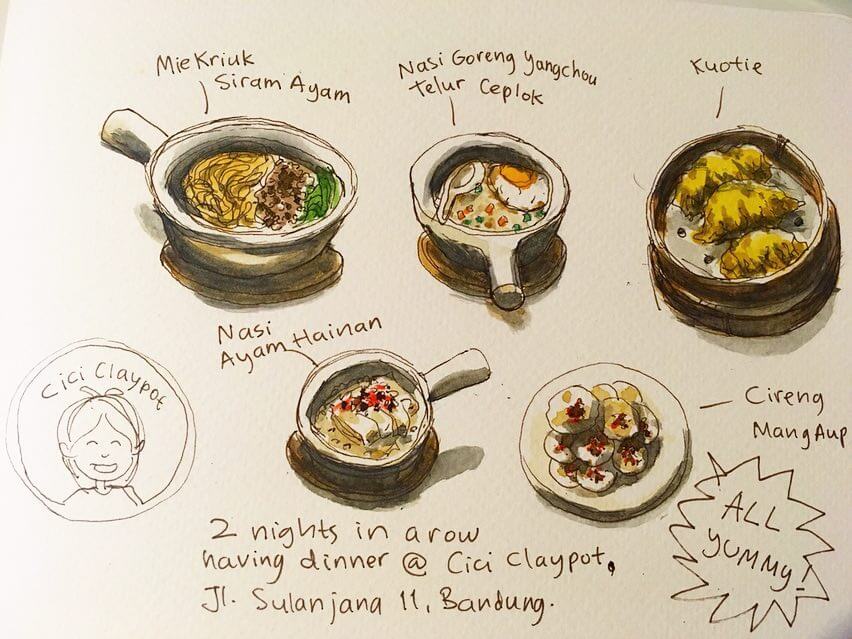 Mie Kriuk
Siram Ayam
Nasi Goreng Yangchou
Telur Ceplok
Kuotie
Cici Claypot
Nasi
Ayam Hainan
Cireng
Mang Aup
2 nights in a row
having dinner @ Cici Claypot,
Jl. Sulanjana 11, Bandung.
ALL
YUMMY!